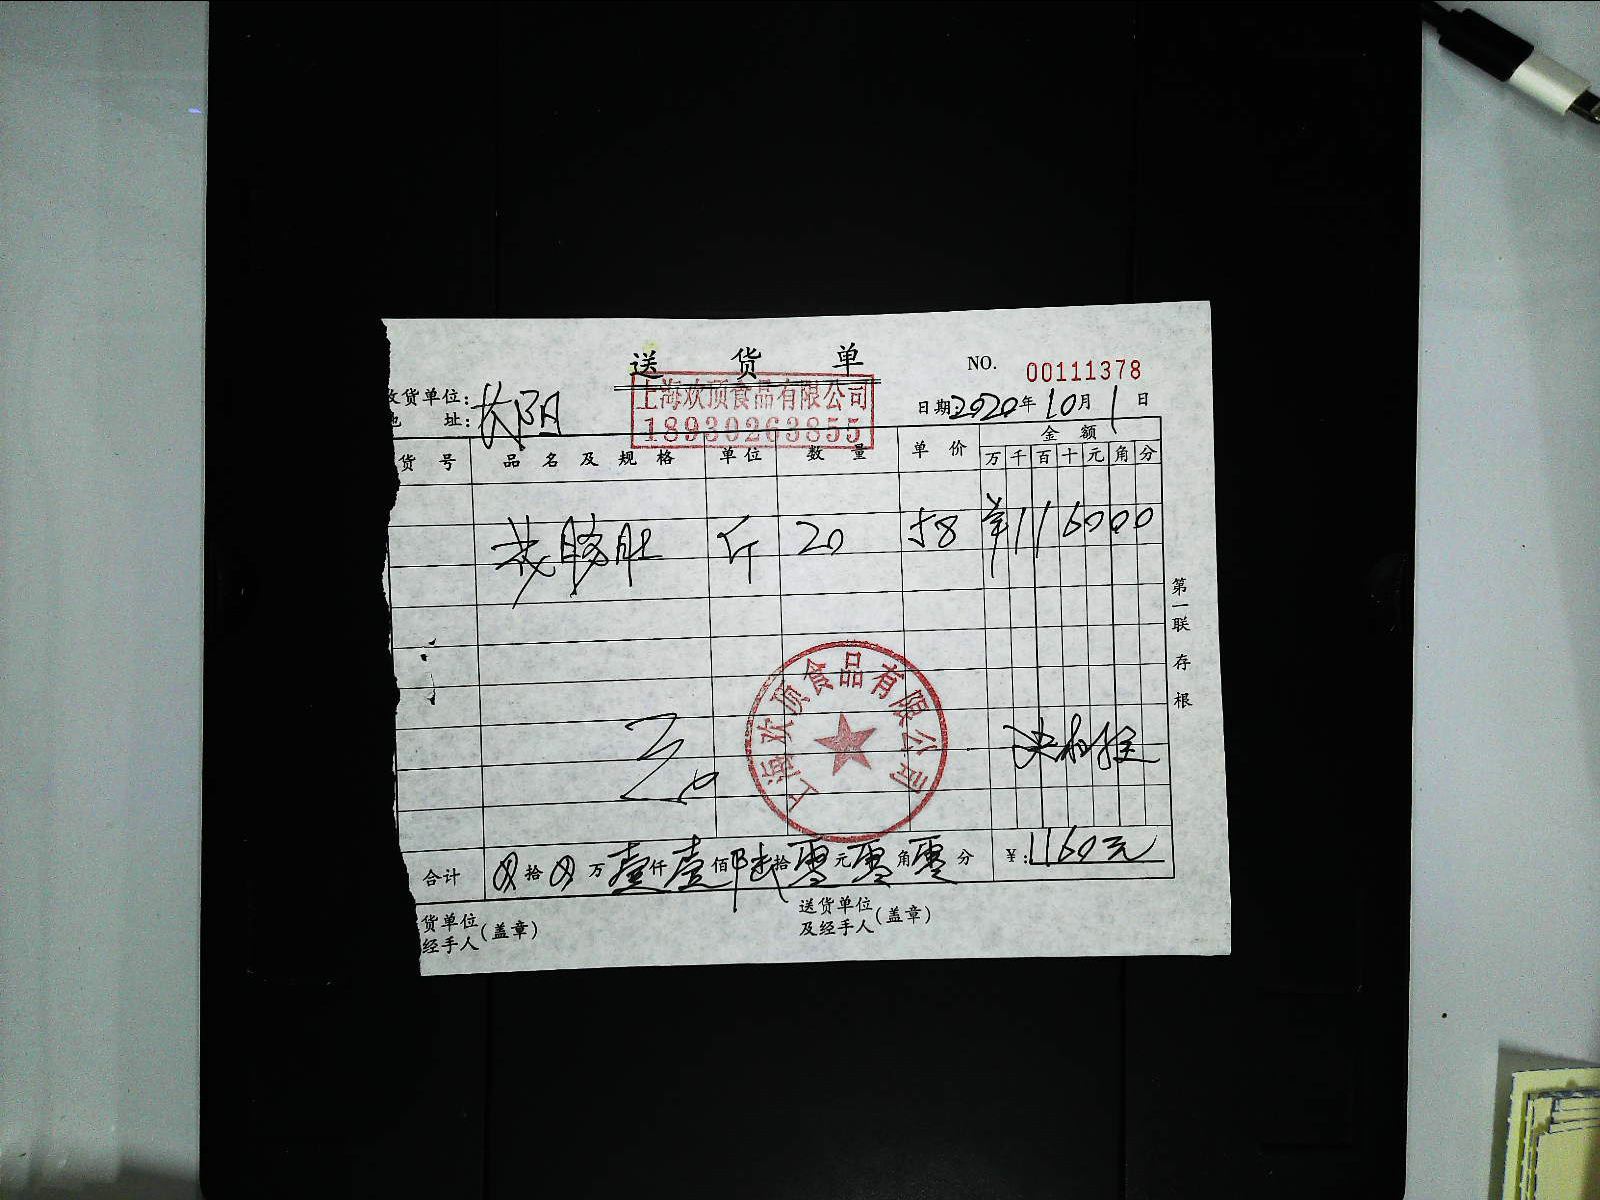 送货单
NO. 00111378
收货单位:
地址:
长阳
上海欢顶食品有限公司
18930263855
日期:2020年10月1日
货号 品名及规格 单位 数量 单价 金额
万千百十元角分
斤 20 58 116000
第一联 存根
上海欢顶食品有限公司
合计 拾 万壹仟壹佰陆拾零元零角零分 ¥:1160元
货单位
经手人(盖章)
送货单位
及经手人(盖章)